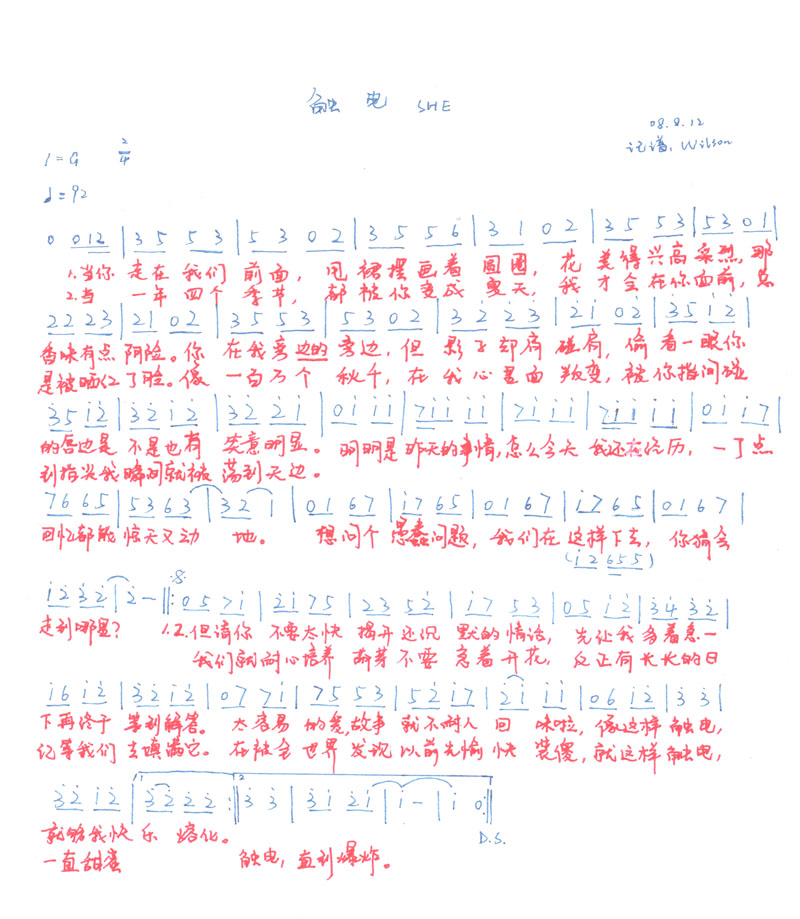 触电 SHE
08.8.12
1=G 2/4
记谱:Wilson
♩=92
0 012 | 35 53 | 53 02 | 35 56 | 31 02 | 35 53 | 53 01 |
1.当你 走在 我们 前面, 甩 裙摆画着 圆圈, 花 美得兴高采烈,那
2.当 一年 四个 季节, 都 被你变成 夏天, 我 才会在你面前,总
22 23 | 21 02 | 35 53 | 53 02 | 32 23 | 21 02 | 35 12 |
香味有点 阴险。你 在我旁边的 旁边,但 影子却肩 碰肩,偷 看一眼你
是被晒红了脸。像 一百万个 秋千,在 我心里面 叛变,被 你指间碰
35 12 | 32 12 | 32 21 | 01 11 | 71 11 | 71 11 | 71 11 | 01 17 |
的唇边是 不是也有 笑意明显。 明明是昨天的事情,怎么今天 我还在经历,一了点
到指尖我 瞬间就被 荡到天边。
76 65 | 53 63 | 32 1 | 01 67 | 17 65 | 01 67 | 17 65 | 01 67 |
回忆都能 惊天又动 地。 想问个 愚蠢问题,我们在 这样下去,你猜会
(12 655)
12 32 | 2 - ‖: 05 71 | 21 75 | 23 52 | 17 53 | 05 12 | 34 32 |
走到哪里? 1.2.但请你 不要太快 揭开还沉 默的情话,先让我 多着急一
我们就耐心培养 萌芽不要 急着开花,反正有 长长的日
16 12 | 32 12 | 07 71 | 75 53 | 52 17 | 21 11 | 06 12 | 3 3 |
下再终于 等到解答。太容易 的爱,故事 就不耐人 回 味啦,像这样 触电,
纪等我们 去填满它。在被全 世界 发现 以前先愉 快 装傻,就这样 触电,
32 12 | 1 32 22 :‖ 2 3 3 | 31 21 | 1 - | 1 0 :‖
就够我快 乐 熔化。 D.S.
一直甜蜜 触电,直到爆炸。